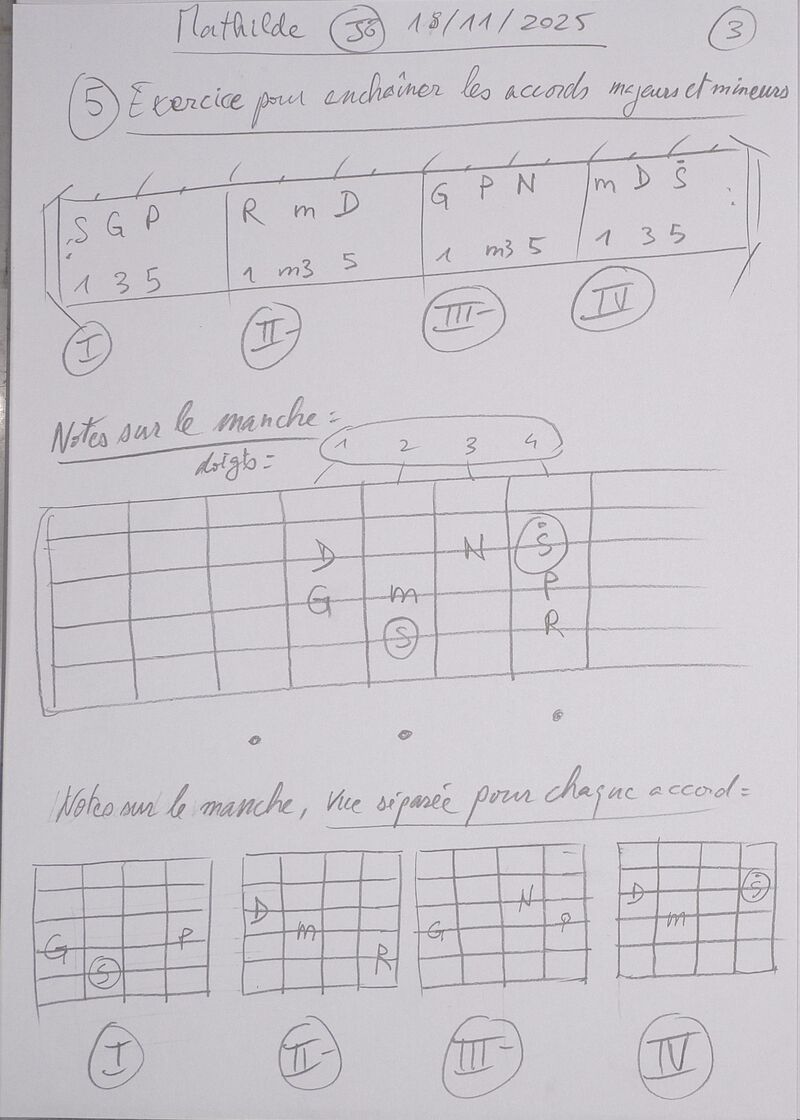 Mathilde JG 18/11/2025 3
5 Exercice pour enchaîner les accords majeurs et mineurs
S G P R m D G P N m D Ṡ
1 3 5 1 m3 5 1 m3 5 1 3 5
I II- III- IV
Notes sur le manche =
doigts = 1 2 3 4
D N Ṡ
G m P
S R
Notes sur le manche, vue séparée pour chaque accord =
G S P D m R G N P D m Ṡ
I II- III- IV